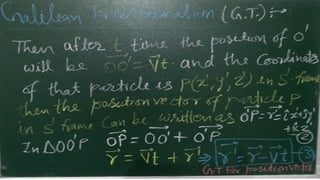 Galilean Transformation (G.T.) :→
Then after t time the position of O'
will be OO' = vt. and the Coordinates
of that particle is P(x', y', z') in S' frame
then the position vector of particle P
in S' frame can be written as O'P = r' = ix' + jy'
+ kz' ②
In ΔOO'P OP = OO' + O'P
r = vt + r' ⇒ r' = r - vt ③
G.T for position vector